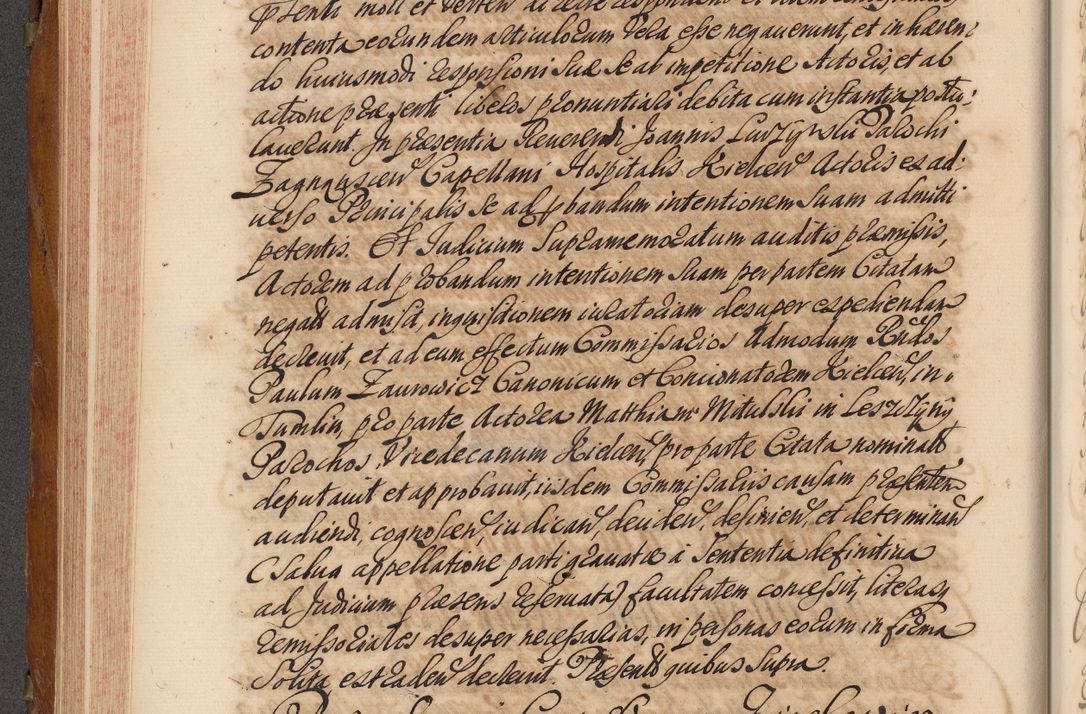 contenta eorundem articulorum vera esse negaverunt, et inhæren:
do huiusmodi responsioni suæ se ab impetitione Actoris, et ab
actione præsenti liberos pronuntiari debita cum instantia postu:
laverunt. In præsentia Reverendi Joannis Parochi
Capellani Hospitalis Kielceñ Actoris ex ad:
verso Principalis se ad pbandum intentionem suam admitti
petentis. Et Judicium supramemoratum auditis præmissis,
Actorem ad probandum intentionem suam per partem Citatam
negatā admisit, inquisitionem iuratoriam desuper expediendam
decrevit, et ad eum effectum Commissarios Admodum Rndos
Paulum Zaurowicz Canonicum et Concionatorem Kielceñ, in
Tumlin, pro parte Actorea Matthiam Mitulski in Leszczyny
Parochos, Vicedecanum Kielceñ, pro parte Citata nominatt
deputavit et approbavit, iisdem Commissariis causam præsentem
audiendi, cognoscen, iudican, deciden, definien, et determinan
(salva appellatione parti gravatæ à Sententia definitiva
ad Judicium præsens reservata) facultatem concessit, literasq
remissoriales desuper necessarias, in personas eorum in forma
solita extraden decrevit. Præsentt quibus supra.